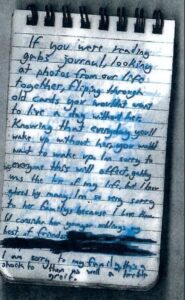 If you were reading
gabs journaul, looking
at photos from our life
together, fliping through
old cards you wouldnt want
to live a day without her
Knowing that everyday you'll
wake up without her, you would
want to wake up. Im sorry to
everyone this will affect, gabby
was the love of my life, but I
gabed by many. Im very sorry
to her family because I love them.
Id consider her siblings
best of friends.
I am sorry to my family, this is a
shock to them as well a terrible
greife.